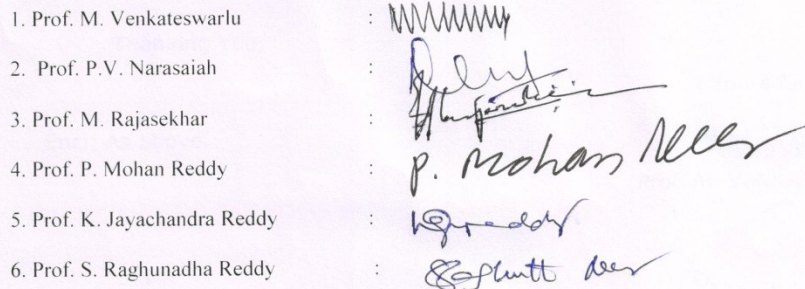 1. Prof. M. Venkateswarlu :
2. Prof. P.V. Narasaiah :
3. Prof. M. Rajasekhar :
4. Prof. P. Mohan Reddy : P. Mohan Reddy
5. Prof. K. Jayachandra Reddy :
6. Prof. S. Raghunadha Reddy :